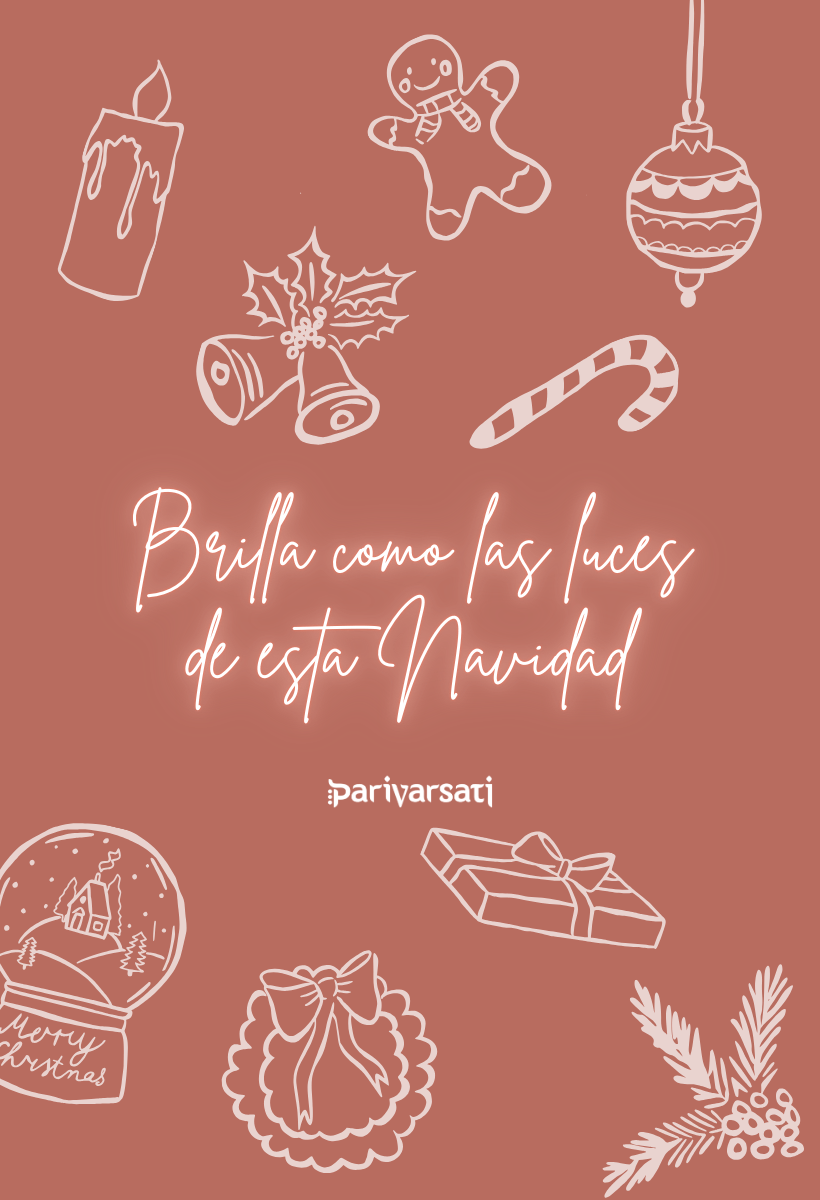 Brilla como las luces
de esta Navidad
parivarsati
Merry
Christmas